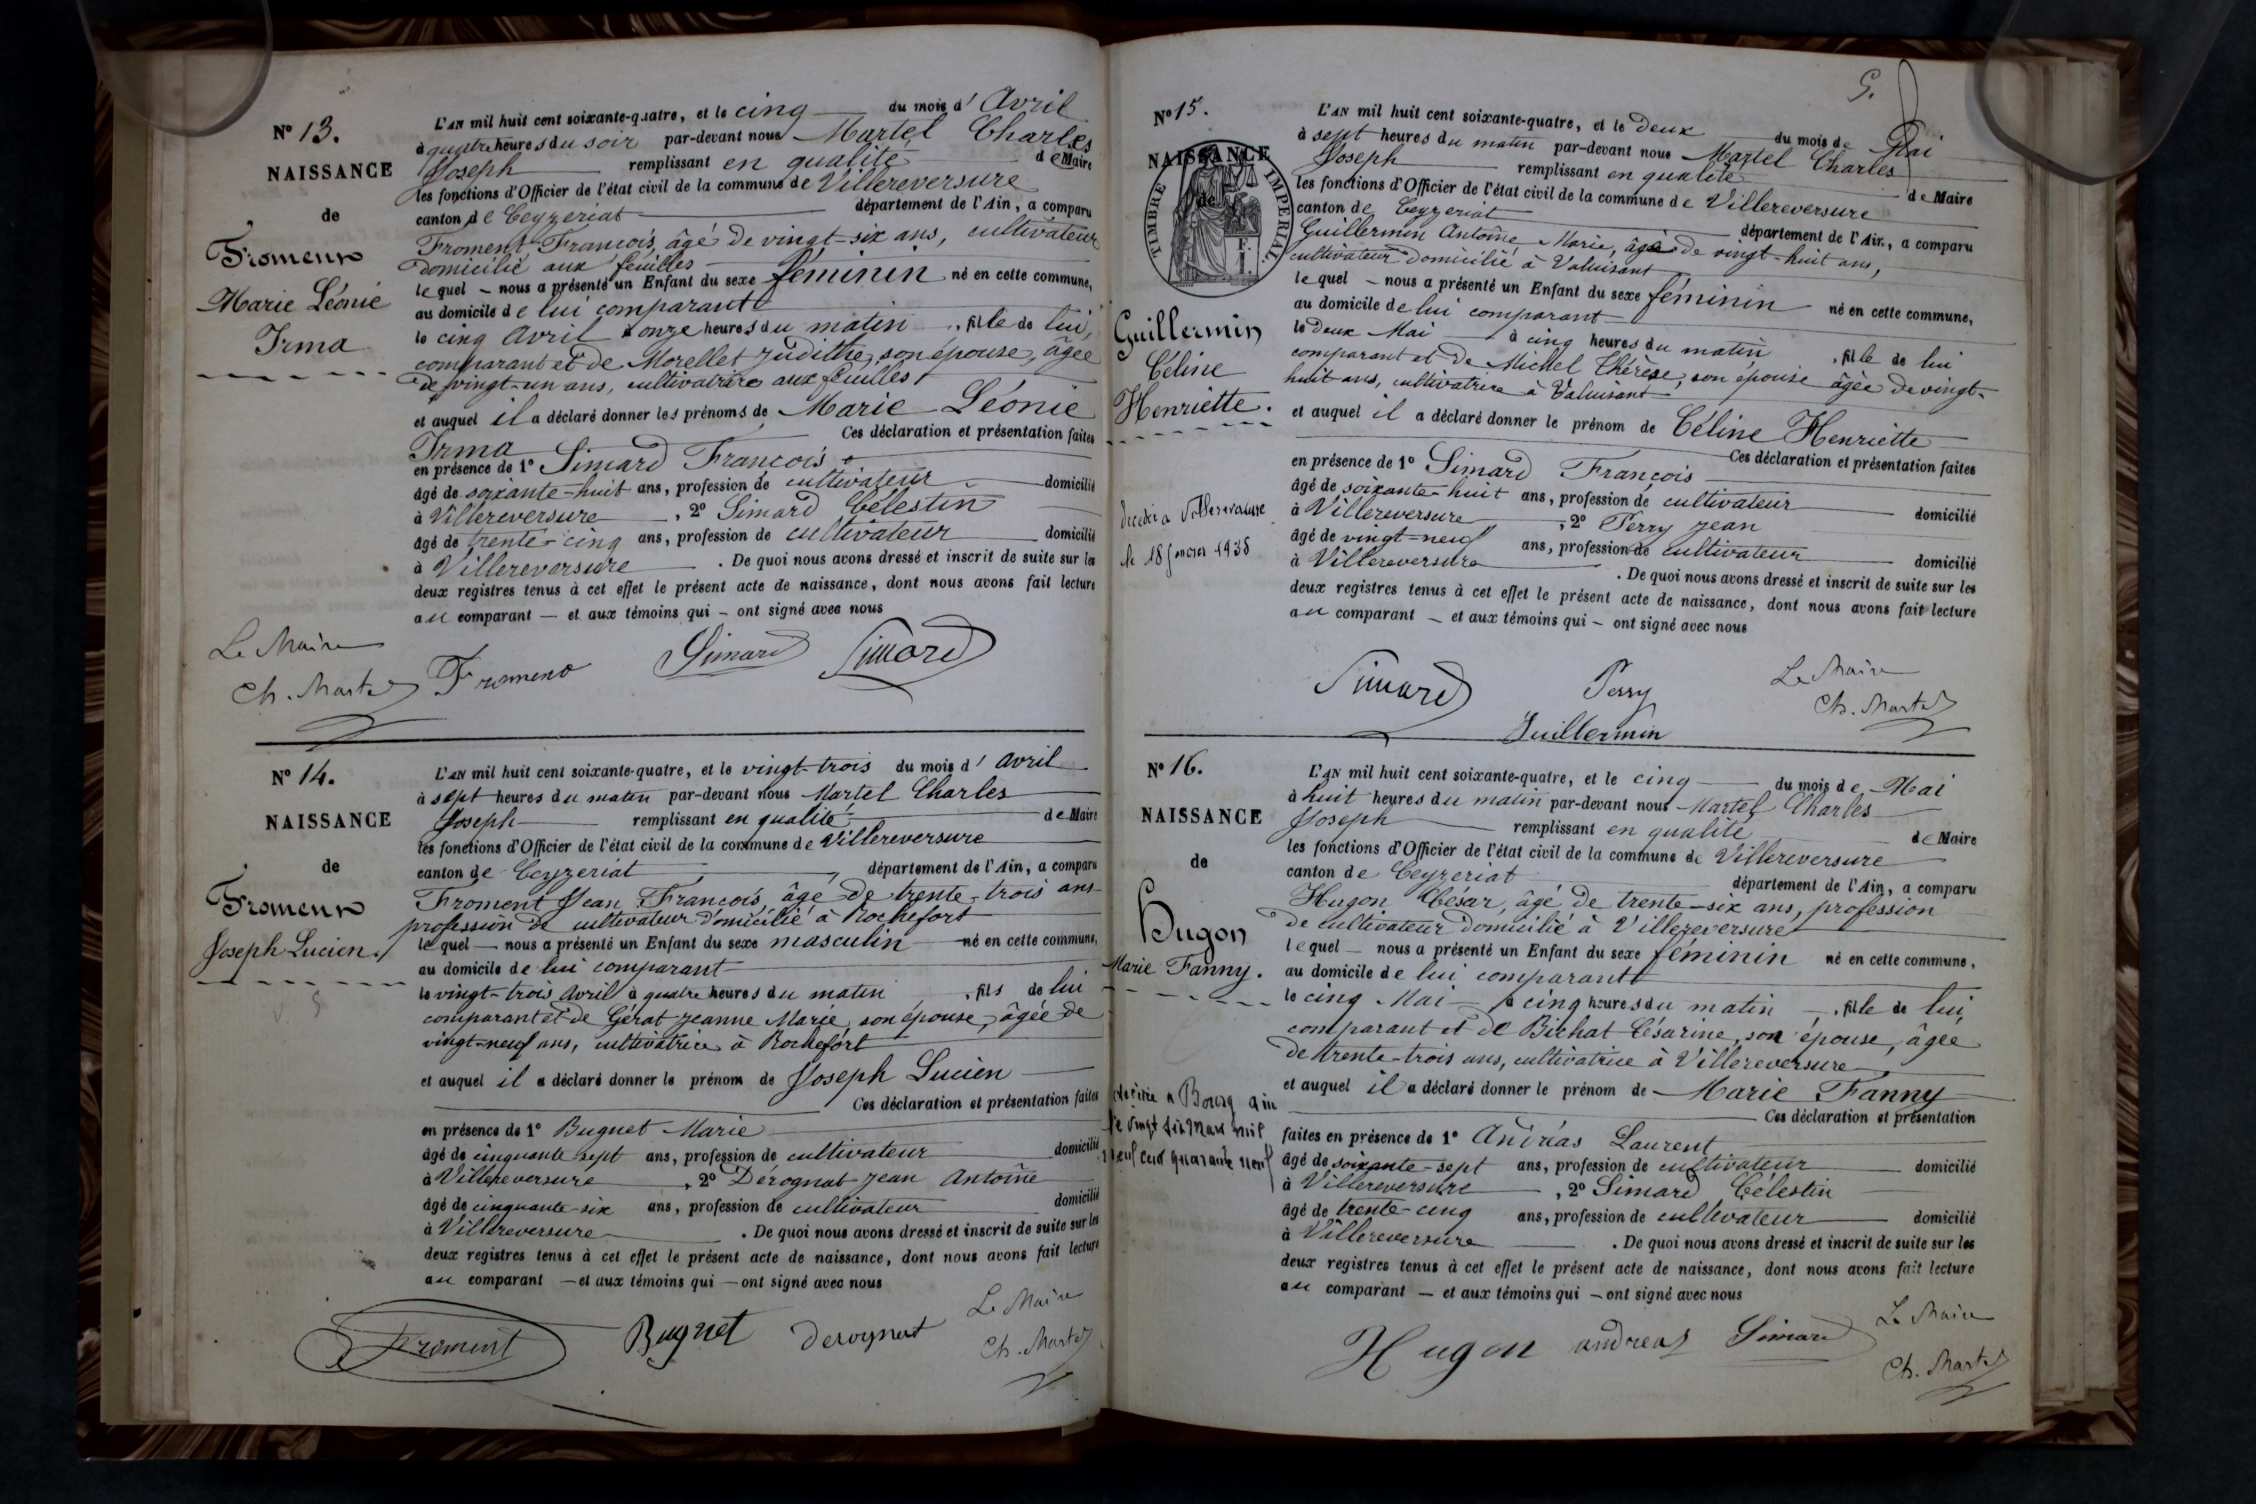 N° 13.
NAISSANCE
de
Froment
Marie Léonie
Irma
L'AN mil huit cent soixante-quatre, et le cinq du mois d' Avril
à quatre heures du soir par-devant nous Martel Charles
Joseph remplissant en qualité de Maire
les fonctions d'Officier de l'état civil de la commune de Villereversure
canton de Ceyzeriat département de l'Ain, a comparu
Froment François, âgé de vingt-six ans, cultivateur
domicilié aux feuilles
lequel nous a présenté un Enfant du sexe féminin né en cette commune,
au domicile de lui comparant
le cinq Avril à onze heures du matin, fille de lui,
comparant et de Morellet Judithe, son épouse, âgée
de vingt-un ans, cultivatrice aux feuilles
et auquel il a déclaré donner les prénoms de Marie Léonie
Irma Ces déclaration et présentation faites
en présence de 1° Simard François
âgé de soixante-huit ans, profession de cultivateur domicilié
à Villereversure, 2° Simard Célestin
âgé de trente-cinq ans, profession de cultivateur domicilié
à Villereversure. De quoi nous avons dressé et inscrit de suite sur les
deux registres tenus à cet effet le présent acte de naissance, dont nous avons fait lecture
au comparant — et aux témoins qui — ont signé avec nous
Le Maire
Ch. Martel Froment Simard Simard
N° 14.
NAISSANCE
de
Froment
Joseph Lucien.
L'AN mil huit cent soixante-quatre, et le vingt-trois du mois d' Avril
à sept heures du matin par-devant nous Martel Charles
Joseph remplissant en qualité de Maire
les fonctions d'Officier de l'état civil de la commune de Villereversure
canton de Ceyzeriat, département de l'Ain, a comparu
Froment Jean François, âgé de trente-trois ans
profession de cultivateur domicilié à Rochefort
lequel — nous a présenté un Enfant du sexe masculin né en cette commune,
au domicile de lui comparant
le vingt-trois Avril à quatre heures du matin, fils de lui
comparant et de Gérat Jeanne Marie, son épouse, âgée de
vingt-neuf ans, cultivatrice à Rochefort
et auquel il a déclaré donner le prénom de Joseph Lucien
Ces déclaration et présentation faites
en présence de 1° Buguet Marie
âgé de cinquante sept ans, profession de cultivateur domicilié
à Villereversure, 2° Dérognat Jean Antoine
âgé de cinquante-six ans, profession de cultivateur domicilié
à Villereversure. De quoi nous avons dressé et inscrit de suite sur les
deux registres tenus à cet effet le présent acte de naissance, dont nous avons fait lecture
au comparant — et aux témoins qui — ont signé avec nous
Le Maire
Froment Buguet Derognat Ch. Martel
5.
N° 15.
NAISSANCE
de
TIMBRE IMPERIAL.
F. I.
Guillermin
Céline
Henriette.
décédée à Villereversure
le 18 janvier 1938
L'AN mil huit cent soixante-quatre, et le deux du mois de Mai
à sept heures du matin par-devant nous Martel Charles
Joseph remplissant en qualité de Maire
les fonctions d'Officier de l'état civil de la commune de Villereversure
canton de Ceyzeriat département de l'Ain, a comparu
Guillermin Antoine Marie, âgé de vingt-huit ans,
cultivateur domicilié à Valuisant
lequel — nous a présenté un Enfant du sexe féminin né en cette commune,
au domicile de lui comparant
le deux Mai à cinq heures du matin, fille de lui
comparant et de Michel Thérèse, son épouse âgée de vingt-
huit ans, cultivatrice à Valuisant
et auquel il a déclaré donner le prénom de Céline Henriette
Ces déclaration et présentation faites
en présence de 1° Simard François
âgé de soixante-huit ans, profession de cultivateur domicilié
à Villereversure, 2° Perry Jean
âgé de vingt-neuf ans, profession de cultivateur domicilié
à Villereversure. De quoi nous avons dressé et inscrit de suite sur les
deux registres tenus à cet effet le présent acte de naissance, dont nous avons fait lecture
au comparant — et aux témoins qui — ont signé avec nous
Simard Perry Le Maire
Guillermin Ch. Martel
N° 16.
NAISSANCE
de
Hugon
Marie Fanny.
décédée à Bourg ain
le vingt six mars mil
neuf cent quarante neuf
L'AN mil huit cent soixante-quatre, et le cinq du mois de Mai
à huit heures du matin par-devant nous Martel Charles
Joseph remplissant en qualité de Maire
les fonctions d'Officier de l'état civil de la commune de Villereversure
canton de Ceyzeriat département de l'Ain, a comparu
Hugon César, âgé de trente-six ans, profession
de cultivateur domicilié à Villereversure
lequel — nous a présenté un Enfant du sexe féminin né en cette commune,
au domicile de lui comparant
le cinq Mai à cinq heures du matin, fille de lui,
comparant et de Bichat Césarine, son épouse, âgée
de trente-trois ans, cultivatrice à Villereversure
et auquel il a déclaré donner le prénom de Marie Fanny
Ces déclaration et présentation
faites en présence de 1° Andréas Laurent
âgé de soixante-sept ans, profession de cultivateur domicilié
à Villereversure, 2° Simard Célestin
âgé de trente-cinq ans, profession de cultivateur domicilié
à Villereversure. De quoi nous avons dressé et inscrit de suite sur les
deux registres tenus à cet effet le présent acte de naissance, dont nous avons fait lecture
au comparant — et aux témoins qui — ont signé avec nous
Le Maire
Hugon andreas Simard Ch. Martel